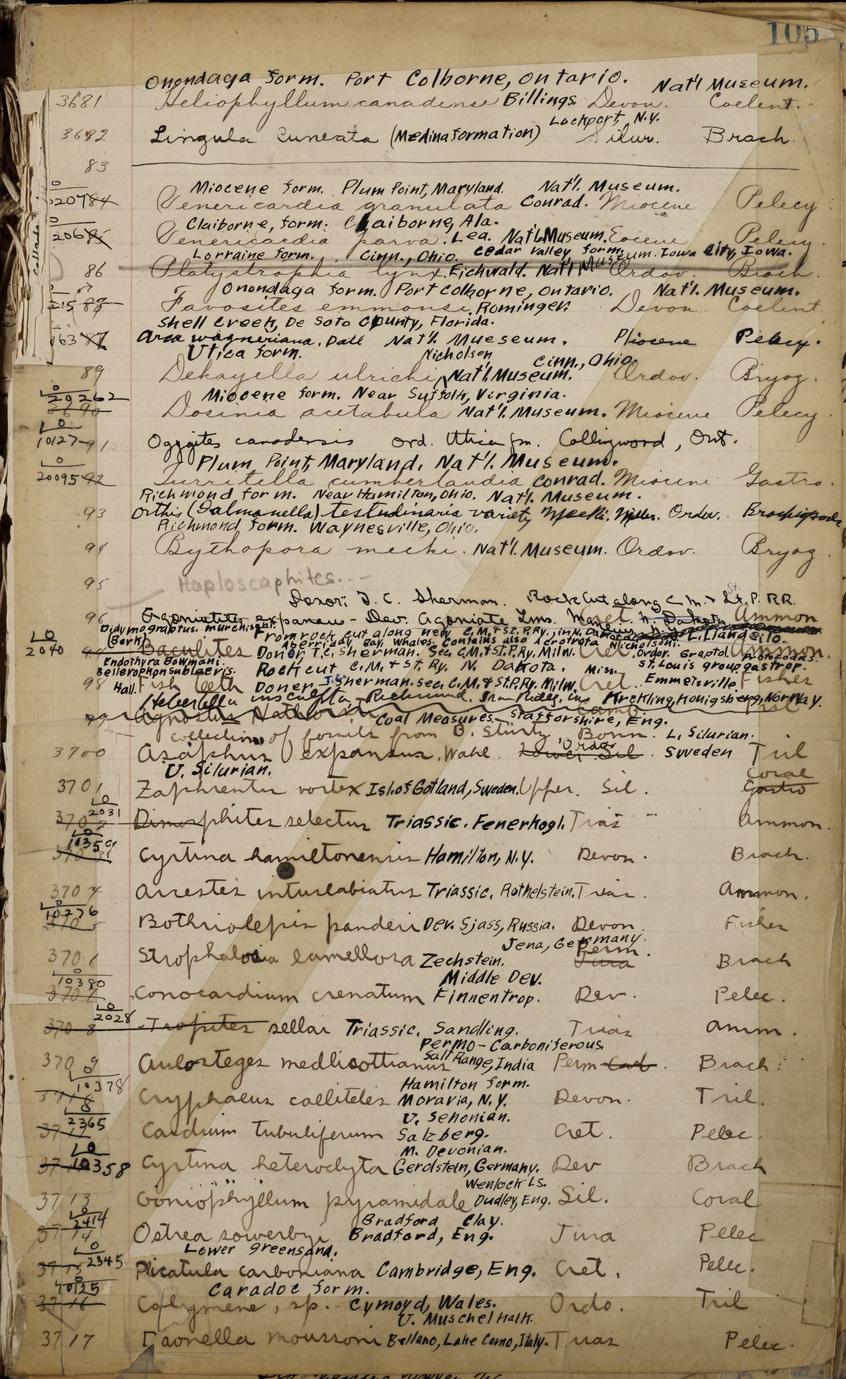 105
Onondaga form. Port Colborne, Ontario. Nat'l Museum.
3681 Heliophyllum canadense Billings Devon. Coelent.
Lockport, N.Y.
3682 Lingula cuneata (Medina formation) Silur. Brach.
83
Miocene form. Plum Point, Maryland. Nat'l. Museum.
20784 Venericardia granulata Conrad. Miocene Pelecy.
Claiborne, form. Claiborne, Ala.
Venericardia parva. Lea. Nat'l. Museum. Eocene Pelecy.
Lorraine form. Cinn., Ohio. Cedar Valley form. Iowa City, Iowa.
86 Platystrophia lynx. Eichwald. Nat'l Museum. Ordov. Brach.
Onondaga form. Port Colborne, Ontario. Nat'l. Museum.
Favosites emmonsi. Rominger. Devon. Coelent.
Shell Creek, De Soto County, Florida.
Arca wagneriana. Dall Nat'l Museum. Pliocene Pelecy.
Utica form. Nicholson Cinn., Ohio.
89 Dekayella ulrichi Nat'l. Museum. Ordov. Bryoz.
Miocene form. Near Suffolk, Virginia.
Dosinia acetabula Nat'l. Museum. Miocene Pelecy.
10127 91 Ogygites canadensis Ord. Utica fm. Collingwood, Ont.
Plum Point, Maryland. Nat'l. Museum.
20095 92 Turritella cumberlandia Conrad. Miocene Gastro.
Richmond form. Near Hamilton, Ohio. Nat'l. Museum.
93 Orthis (Dalmanella) testudinaria variety Meeki. Miller. Ordov. Brachiopoda
Richmond form. Waynesville, Ohio.
94 Bythopora meeki. Nat'l. Museum. Ordov. Bryoz.
95 Haploscaphites.
Donor J. C. Sherman. Rock cut along C. M. & St. P. RR.
96 Agoniatites expansus - Dev. Agoniate Lms. N. Dakota Ammon
Didymograptus murchisoni From rock cut along new C. M. & St. P. Ry., in N. Dakota Llandeilo.
(Beck) Aberriddy Bay, Whales. Contains also Nicholsoni.
L0 2040 Baculites Donor T. C. Sherman. Sec. C. M. & St. P. Ry. Milw. Ordov. Graptol. Ammon.
Endothyra Bowmani. Rock cut C. M. & St. P. Ry. N. Dakota. Miss. St. Louis group gastrop.
Bellerophon sublaevis. Emmetsville.
98 Hall. Fish teeth Donor J. C. Sherman. sec. C. M. & St. P. Ry. Milw. Cret. Fishes
Coal Measures Staffordshire, Eng.
collection of fossils from B. Stürtz, Bonn. L. Silurian.
3700 Asaphus expansus, Wahl. Lower Sil Ordov. Sweden Tril
U. Silurian.
Coral
3701 Zaphrentis vortex Isl. of Gotland, Sweden. Upper. Sil. Gastro
L0 2031 Dimorphites selectus Triassic. Feuerkogl. Trias " Ammon.
L0 10359 Cyrtina hamiltonensis Hamilton, N.Y. Devon. Brach.
3704 Arcestes intuslabiatus Triassic, Rothelstein. Trias. Ammon.
L0 10776 Bothriolepis panderi Dev. Sjass, Russia. Devon. Fishes
Jena, Germany.
3706 Strophalosia lamellosa Zechstein. Perm. Jura Brach
L0 10380 Middle Dev.
Conocardium crenatum Finnentrop. Dev. Pelec.
L0 2028
3708 Tropites sellai Triassic, Sandling. Trias Amm.
Permo-Carboniferous
3709 Aulosteges medlicottianus Salt Range, India Perm-Carb. Brach
L0 10378 Hamilton form.
Cryphaeus calliteles Moravia, N.Y. Devon. Tril.
L0 2365 U. Senonian.
Cardium tubuliferum Salzberg. Cret. Pelec.
L0 10358 M. Devonian.
Cyrtina heteroclyta Gerolstein, Germany. Dev Brach
Wenlock Ls.
3713 Goniophyllum pyramidale Dudley, Eng. Sil. Coral
L0 2414 Bradford Clay.
Ostrea sowerbyi Bradford, Eng. Jura Pelec
L0 2345 Lower Greensand.
3715 Plicatula carboniana Cambridge, Eng. Cret. Pelec.
L0 40125 Caradoc form.
3716 Calymene, sp. Cymoyd, Wales. Ordo. Tril
U. Muschelkalk.
3717 Daonella moussoni Bellano, Lake Como, Italy. Trias Pelec.